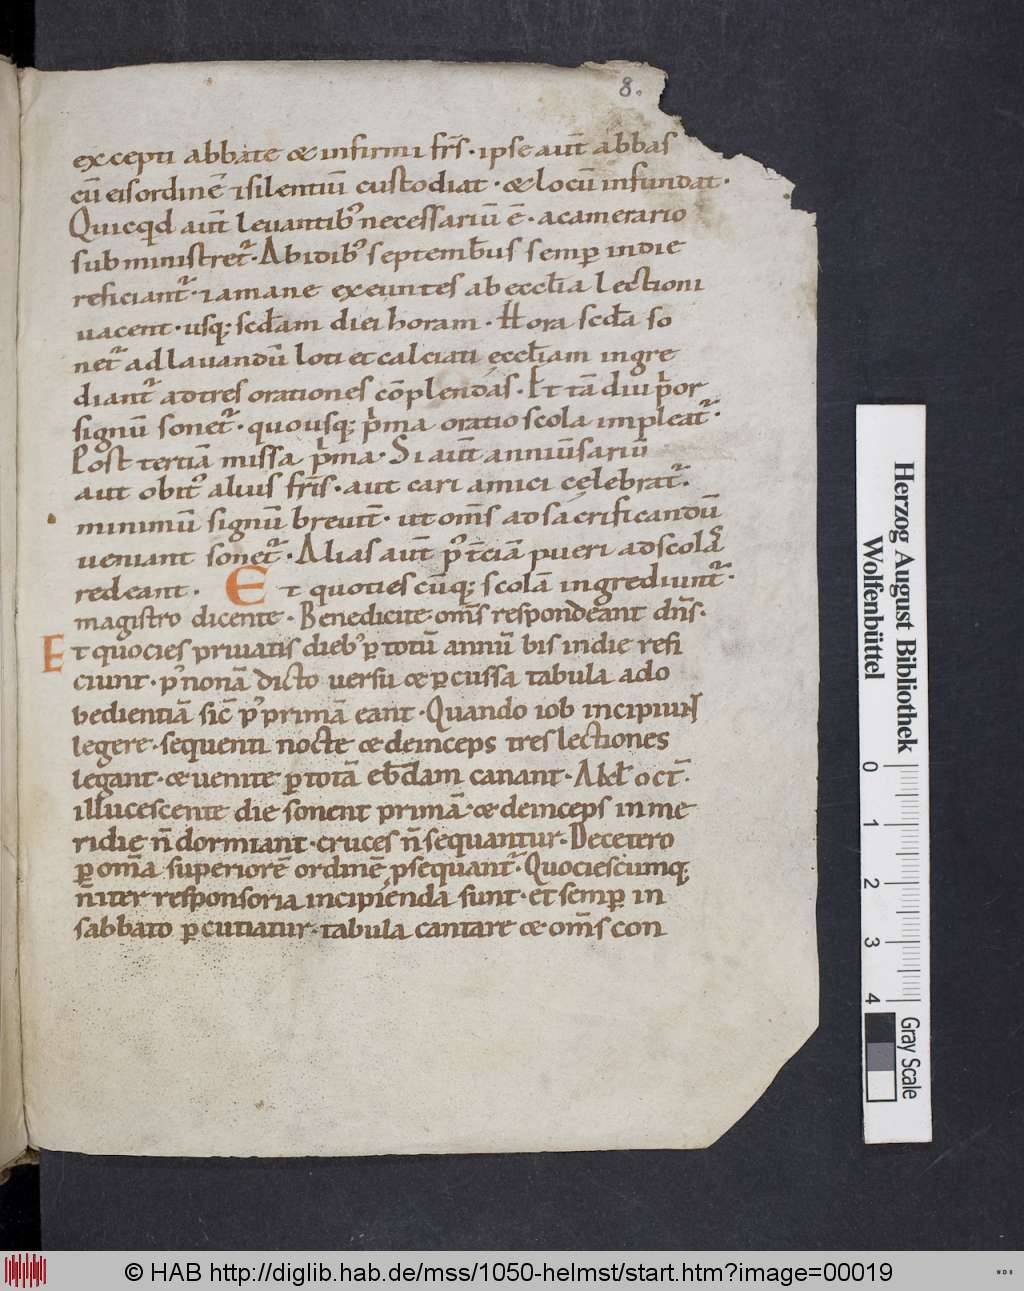 8.
excepti abbate & infirmi fr̄s · ipse aut̄ abbas
cū eis ordinē ⁊ silentiū custodiat · & locū infundat ·
Quicq̇d aut̄ leuantibꝰ necessariū ē · a camerario
subministret᷑ · Ab idibꝰ septemb̄us semꝑ in die
reficiant᷑ · ⁊ a mane exeuntes ab eccl̄ia lectioni
uacent · usq; scd̄am diei horam · Hora scd̄a so
net᷑ ad lauandū loti et calciati ęccl̄iam ingre
diant᷑ ad tres orationes cōplendas · Et tā diu p̍or
signū sonet᷑ · quousq; p̍ma oratio scola impleat᷑ ·
Post tertiā missa p̍ma · Si aut̄ anniu̅sariū
aut obitꝰ alius fr̄is · aut cari amici cęlebrat᷑ ·
minimū signū breuit̄ · ut om̄s ad sacrificandū
ueniant sonet᷑ · Alias aut̄ pꝰ t̄ciā pueri ad scolā
redeant · Et quoties cūq; scolā ingrediunt᷑ ·
magistro dicente · Benedicite · om̄s respondeant dn̄s ·
Et quocies priuatis diebꝰ ꝑ totū annū bis in die refi
ciunt · pꝰ nonā dicto uersu & ꝑcussa tabula ad o
bedientiā sic̄ pꝰ primā eant · Quando iob incipiunt
legere · sequenti nocte & deinceps tres lectiones
legant · & uenite ꝑ totā ebd̄am canant · A kl̄ oct̄ ·
illucescente die sonent primā · & deinceps in me
ridie n̄ dormiant · cruces n̄ sequantur · De cetero
ꝑ om̄a superiorē ordinē ꝓsequant᷑ · Quociescumq;
n̄iter responsoria incipienda sunt · et semꝑ in
sabbato ꝑcutiatur · tabula cantare & om̄s con
Herzog August Bibliothek
Wolfenbüttel
0 1 2 3 4
Gray Scale
© HAB http://diglib.hab.de/mss/1050-helmst/start.htm?image=00019